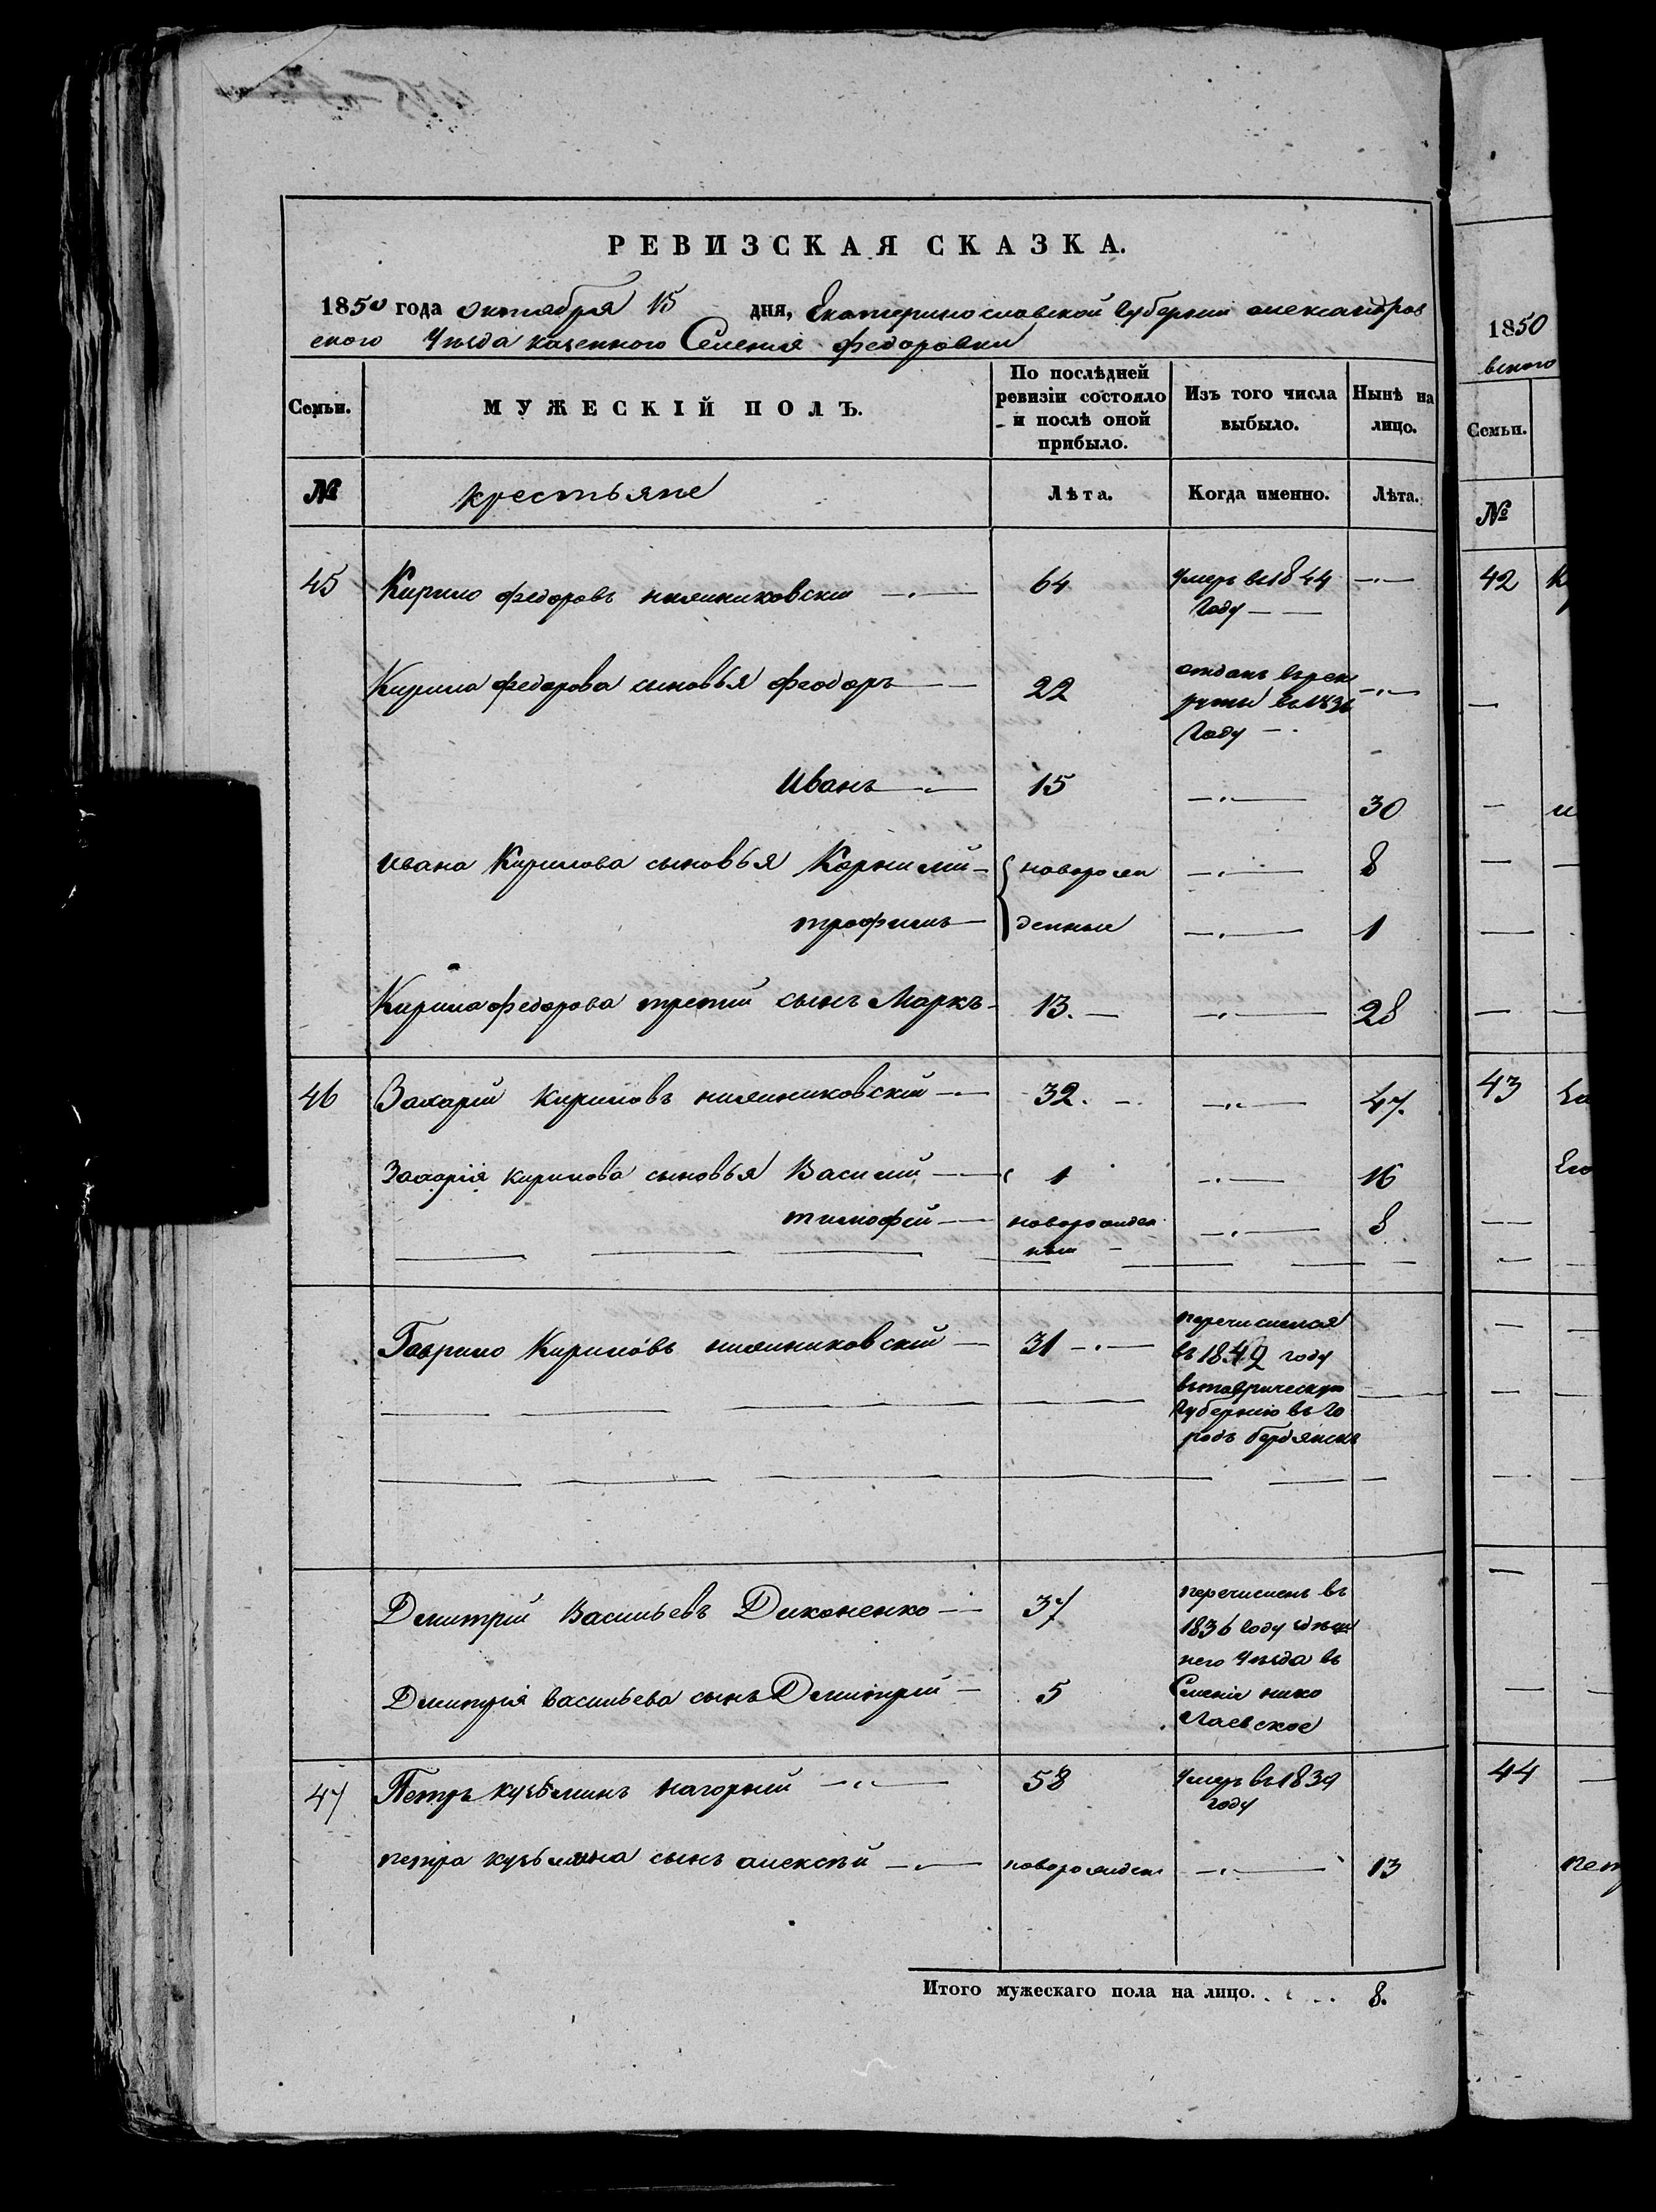 РЕВИЗСКАЯ СКАЗКА.
1850 года октября 15 дня, Екатеринославской губернии александров
ского Уезда казенного Селения федоровки
Семьи. МУЖЕСКІЙ ПОЛЪ. По послѣдней ревизіи состояло и послѣ оной прибыло. Изъ того числа выбыло. Нынѣ на лицо.
№ крестьяне Лѣта. Когда именно. Лѣта.
45 Кирило федоровъ 64 Умеръ въ 1844
году
Кирила федорова сыновья феодоръ 22 отданъ въ рек
руты въ 1836
году
Иванъ 15 30
Ивана Кирилова сыновья Корнилий новорож 8
трофимъ денные 1
Кирила федорова третий сынъ Маркъ 13. 28
46 Захарий Кириловъ 32. 47.
Захарія Кирилова сыновья Василий 1 16
тимофей новорожден 8
ный
Гаврило Кириловъ 31 перечислился
въ 1842 году
въ таврическую
Губернию въ го
родъ бердянскъ
Дмитрий Васильевъ Диконенко 37 перечисленъ въ
1836 году здеш
него Уезда въ
Дмитрія васильева сынъ Дмитрий 5 Селение нико
лаевское
47 Петръ кузьминъ нагорний 58 Умеръ въ 1839
году
петра кузьмина сынъ алексѣй новорожден 13
Итого мужескаго пола на лицо. 8.
1850
вского
Семьи.
№
42
43
44